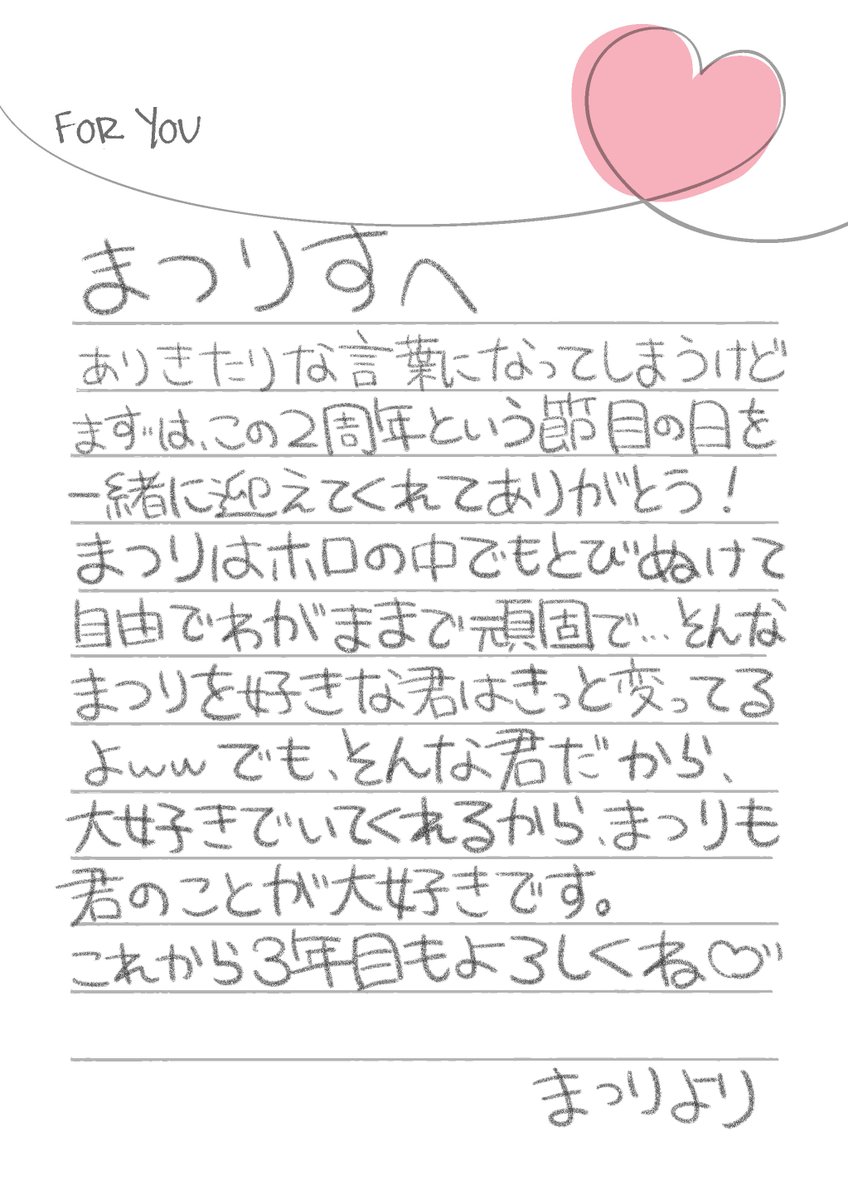 FOR YOU
まつりすへ
ありきたりな言葉になってしまうけど
まずは、この2周年という節目の日を
一緒に迎えてくれてありがとう!
まつりはホロの中でもとびぬけて
自由でわがままで頑固で…そんな
まつりを好きな君はきっと変ってる
よww でも、そんな君だから、
大好きでいてくれるから、まつりも
君のことが大好きです。
これから3年目もよろしくね♡
まつりより